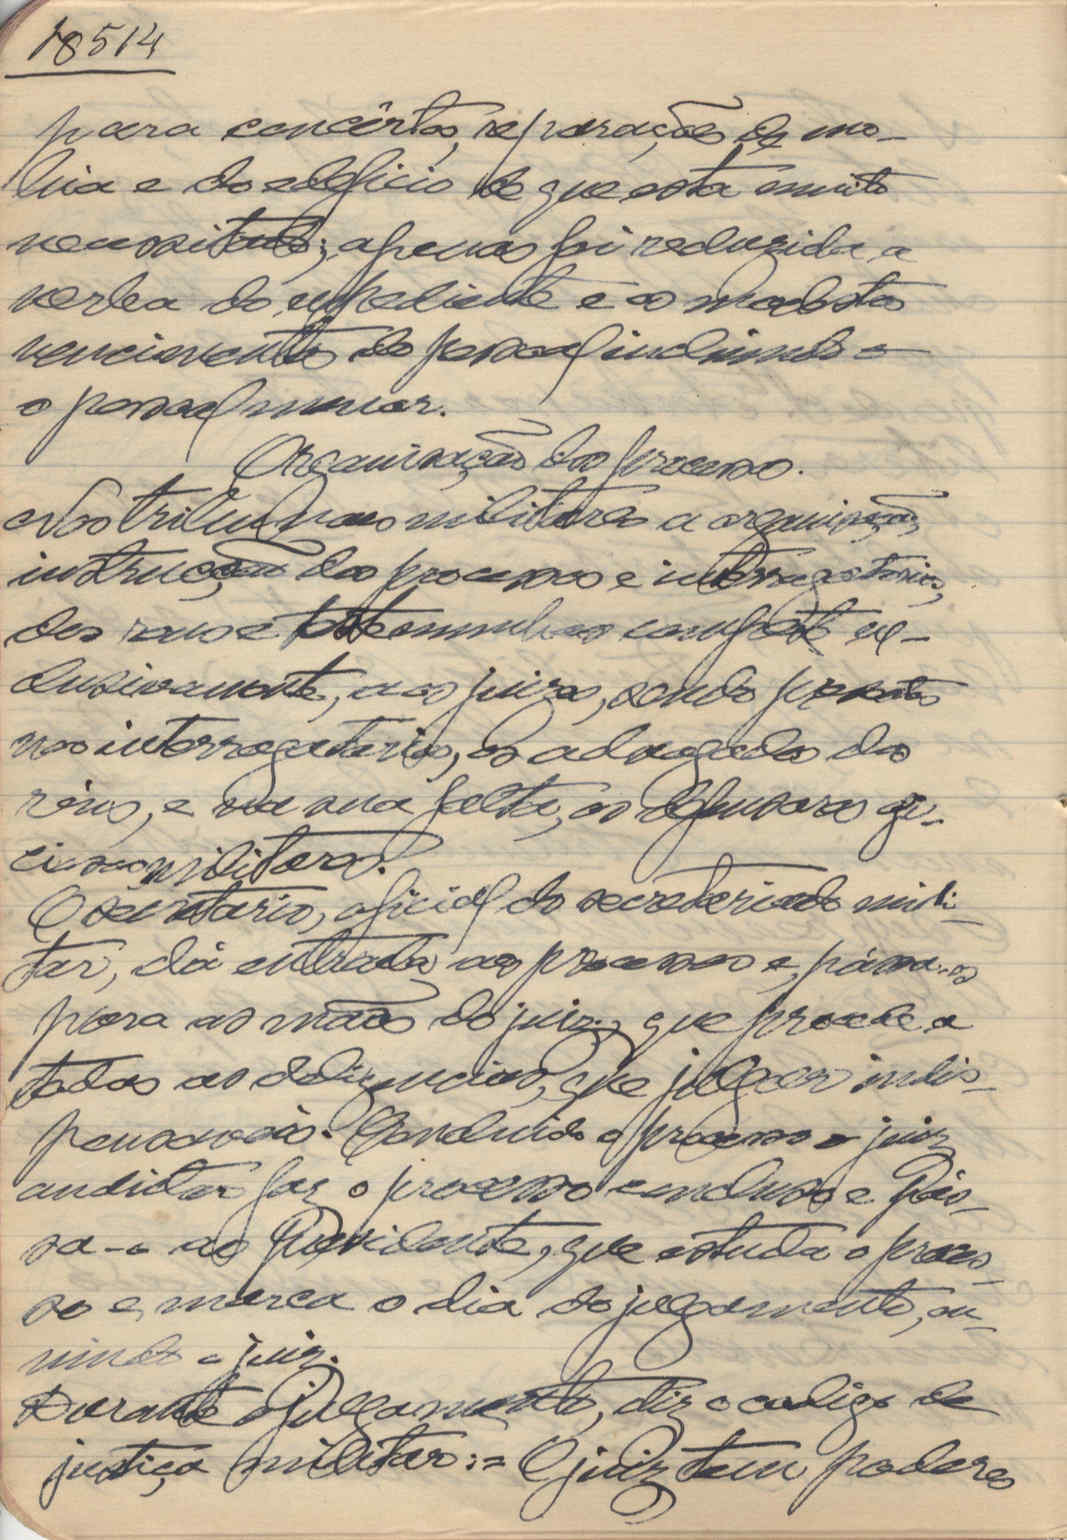 18514
para concêrtos, reparações de mo-
bilia e do edificio de que está muito
necessitado; apenas foi reduzida a
verba do expediente e os modestos
vencimentos do pessoal incluindo
o pessoal menor.
Organisação dos processo.
Nos tribunaes militares a organisação,
instrucção dos processos e interrogatorios,
dos reus e testemunhas compete ex-
clusivamente, aos juizes, sendo
nos interrogatorios, os advogados dos
réus, e na sua falta, os defensores ofi-
ciosos militares.
O secretario, oficial do secretariado mili-
tar, dá entrada aos processos e, passa-os
para as mãos do juiz, que procede a
todas as deligencias, que julgar indis-
pensaveis. Concluido o processo o juiz
auditor faz o processo concluso e pas-
sa-o ao Presidente, que estuda o proces-
so e, marca o dia do julgamento, ou-
vindo o juiz.
Durante o julgamento, diz o codigo de
justiça militar := O juiz tem poderes